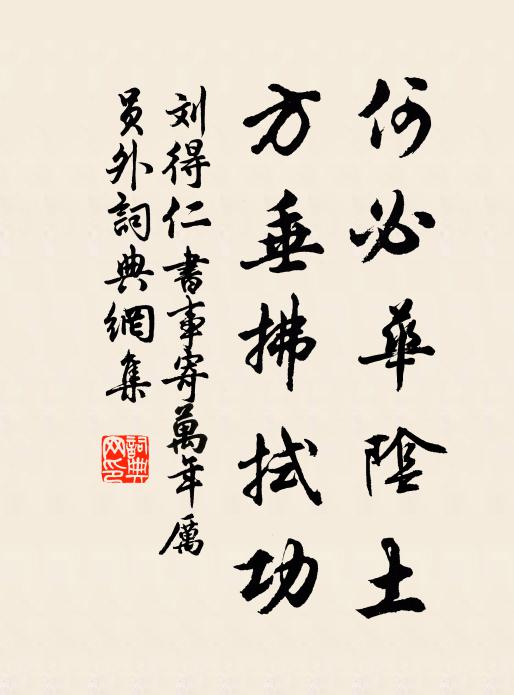 何必華陰土
方垂拂拭功
刘得仁書事寄萬年厲
員外詞典網集
詞典网印